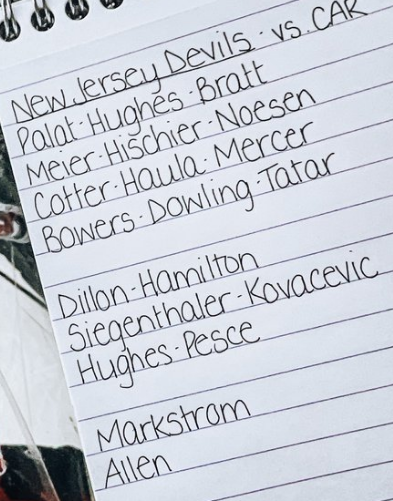 New Jersey Devils · vs. CAR
Palat · Hughes · Bratt
Meier · Hischier · Noesen
Cotter · Haula · Mercer
Bowers · Dowling · Tatar
Dillon · Hamilton
Siegenthaler · Kovacevic
Hughes · Pesce
Markstrom
Allen